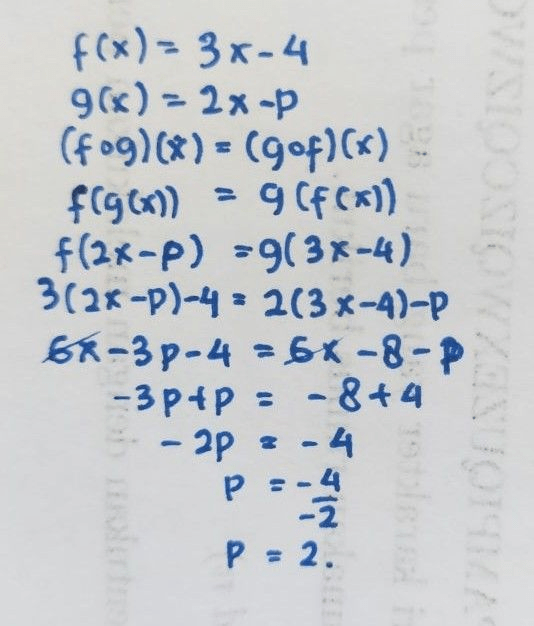 f(x) = 3x - 4
g(x) = 2x - p
(f∘g)(x) = (g∘f)(x)
f(g(x)) = g(f(x))
f(2x-p) = g(3x-4)
3(2x-p)-4 = 2(3x-4)-p
6x-3p-4 = 6x-8-p
-3p+p = -8+4
-2p = -4
p = -4/-2
p = 2.